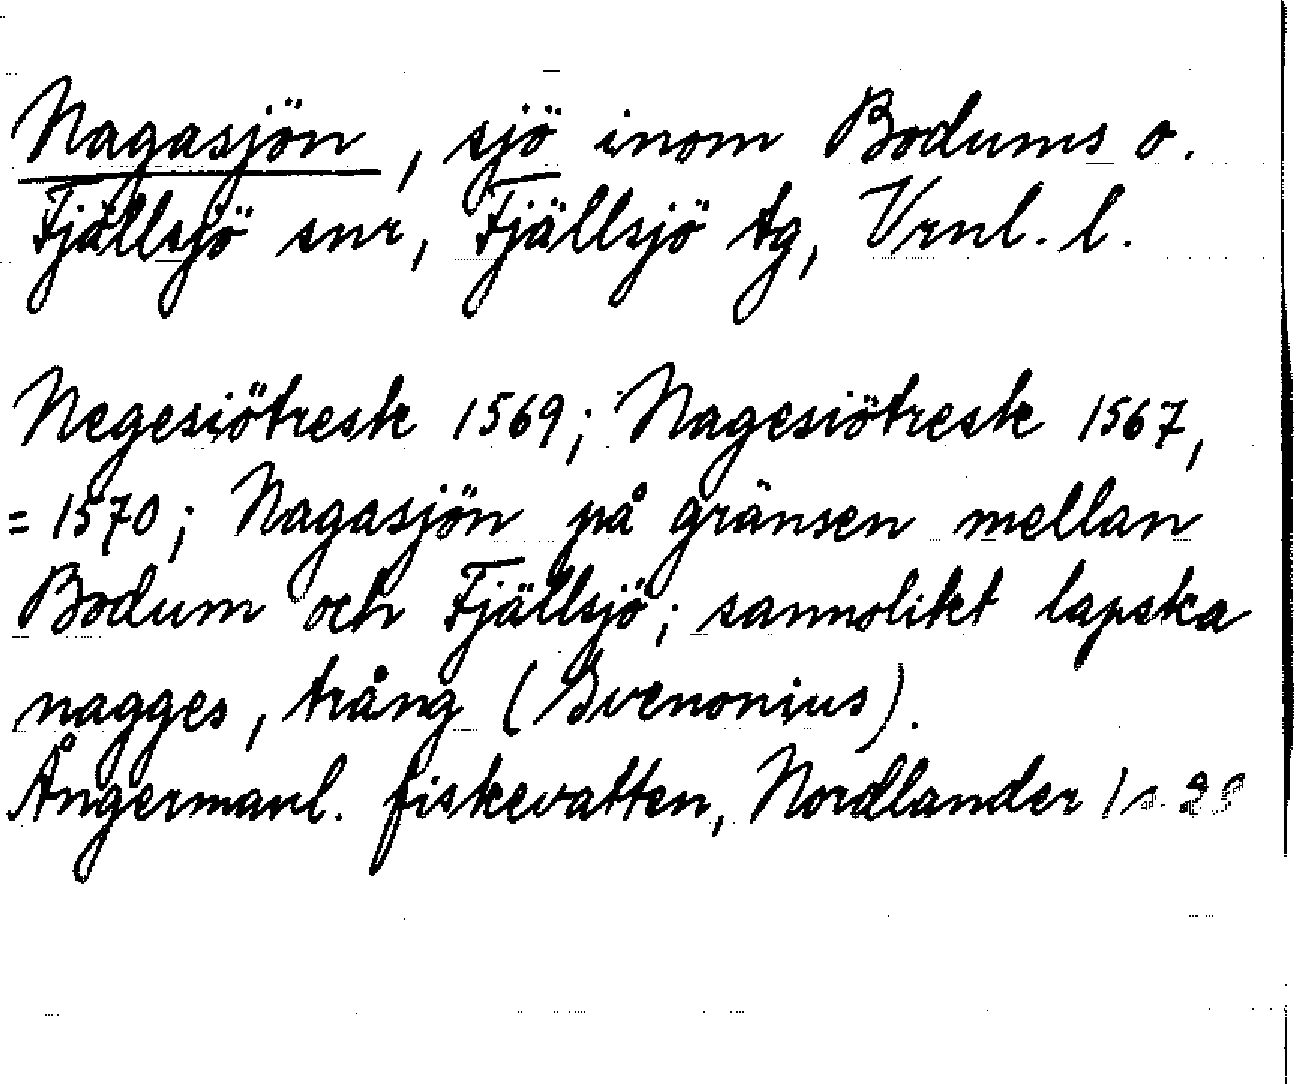 Nagasjön, sjö inom Bodums o.
Fjällsjö snr, Fjällsjö tg, Vrnl. l.
Negesiötresk 1569; Nagesiötresk 1567,
= 1570; Nagasjön på gränsen mellan
Bodum och Fjällsjö; sannolikt lapska
nagges, trång (Svenonius).
Ångermanl. fiskevatten, Nordlander